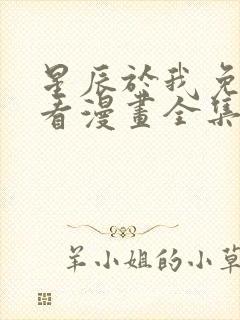 星辰於我免
看漫畫全集
羊小姐的小草